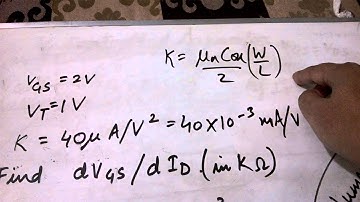 K = μn Cox/2 (W/L)
VGS = 2V
VT = 1V
K = 40μ A/V² = 40×10⁻³ mA/V
Find dVGS / dID (in KΩ)